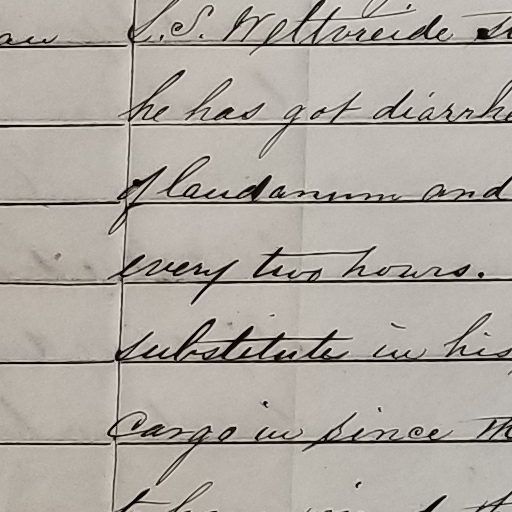 S.S. Weltvreide
he has got diarrhe
of laudanum and
every two hours.
substitute in his
cargo in since th